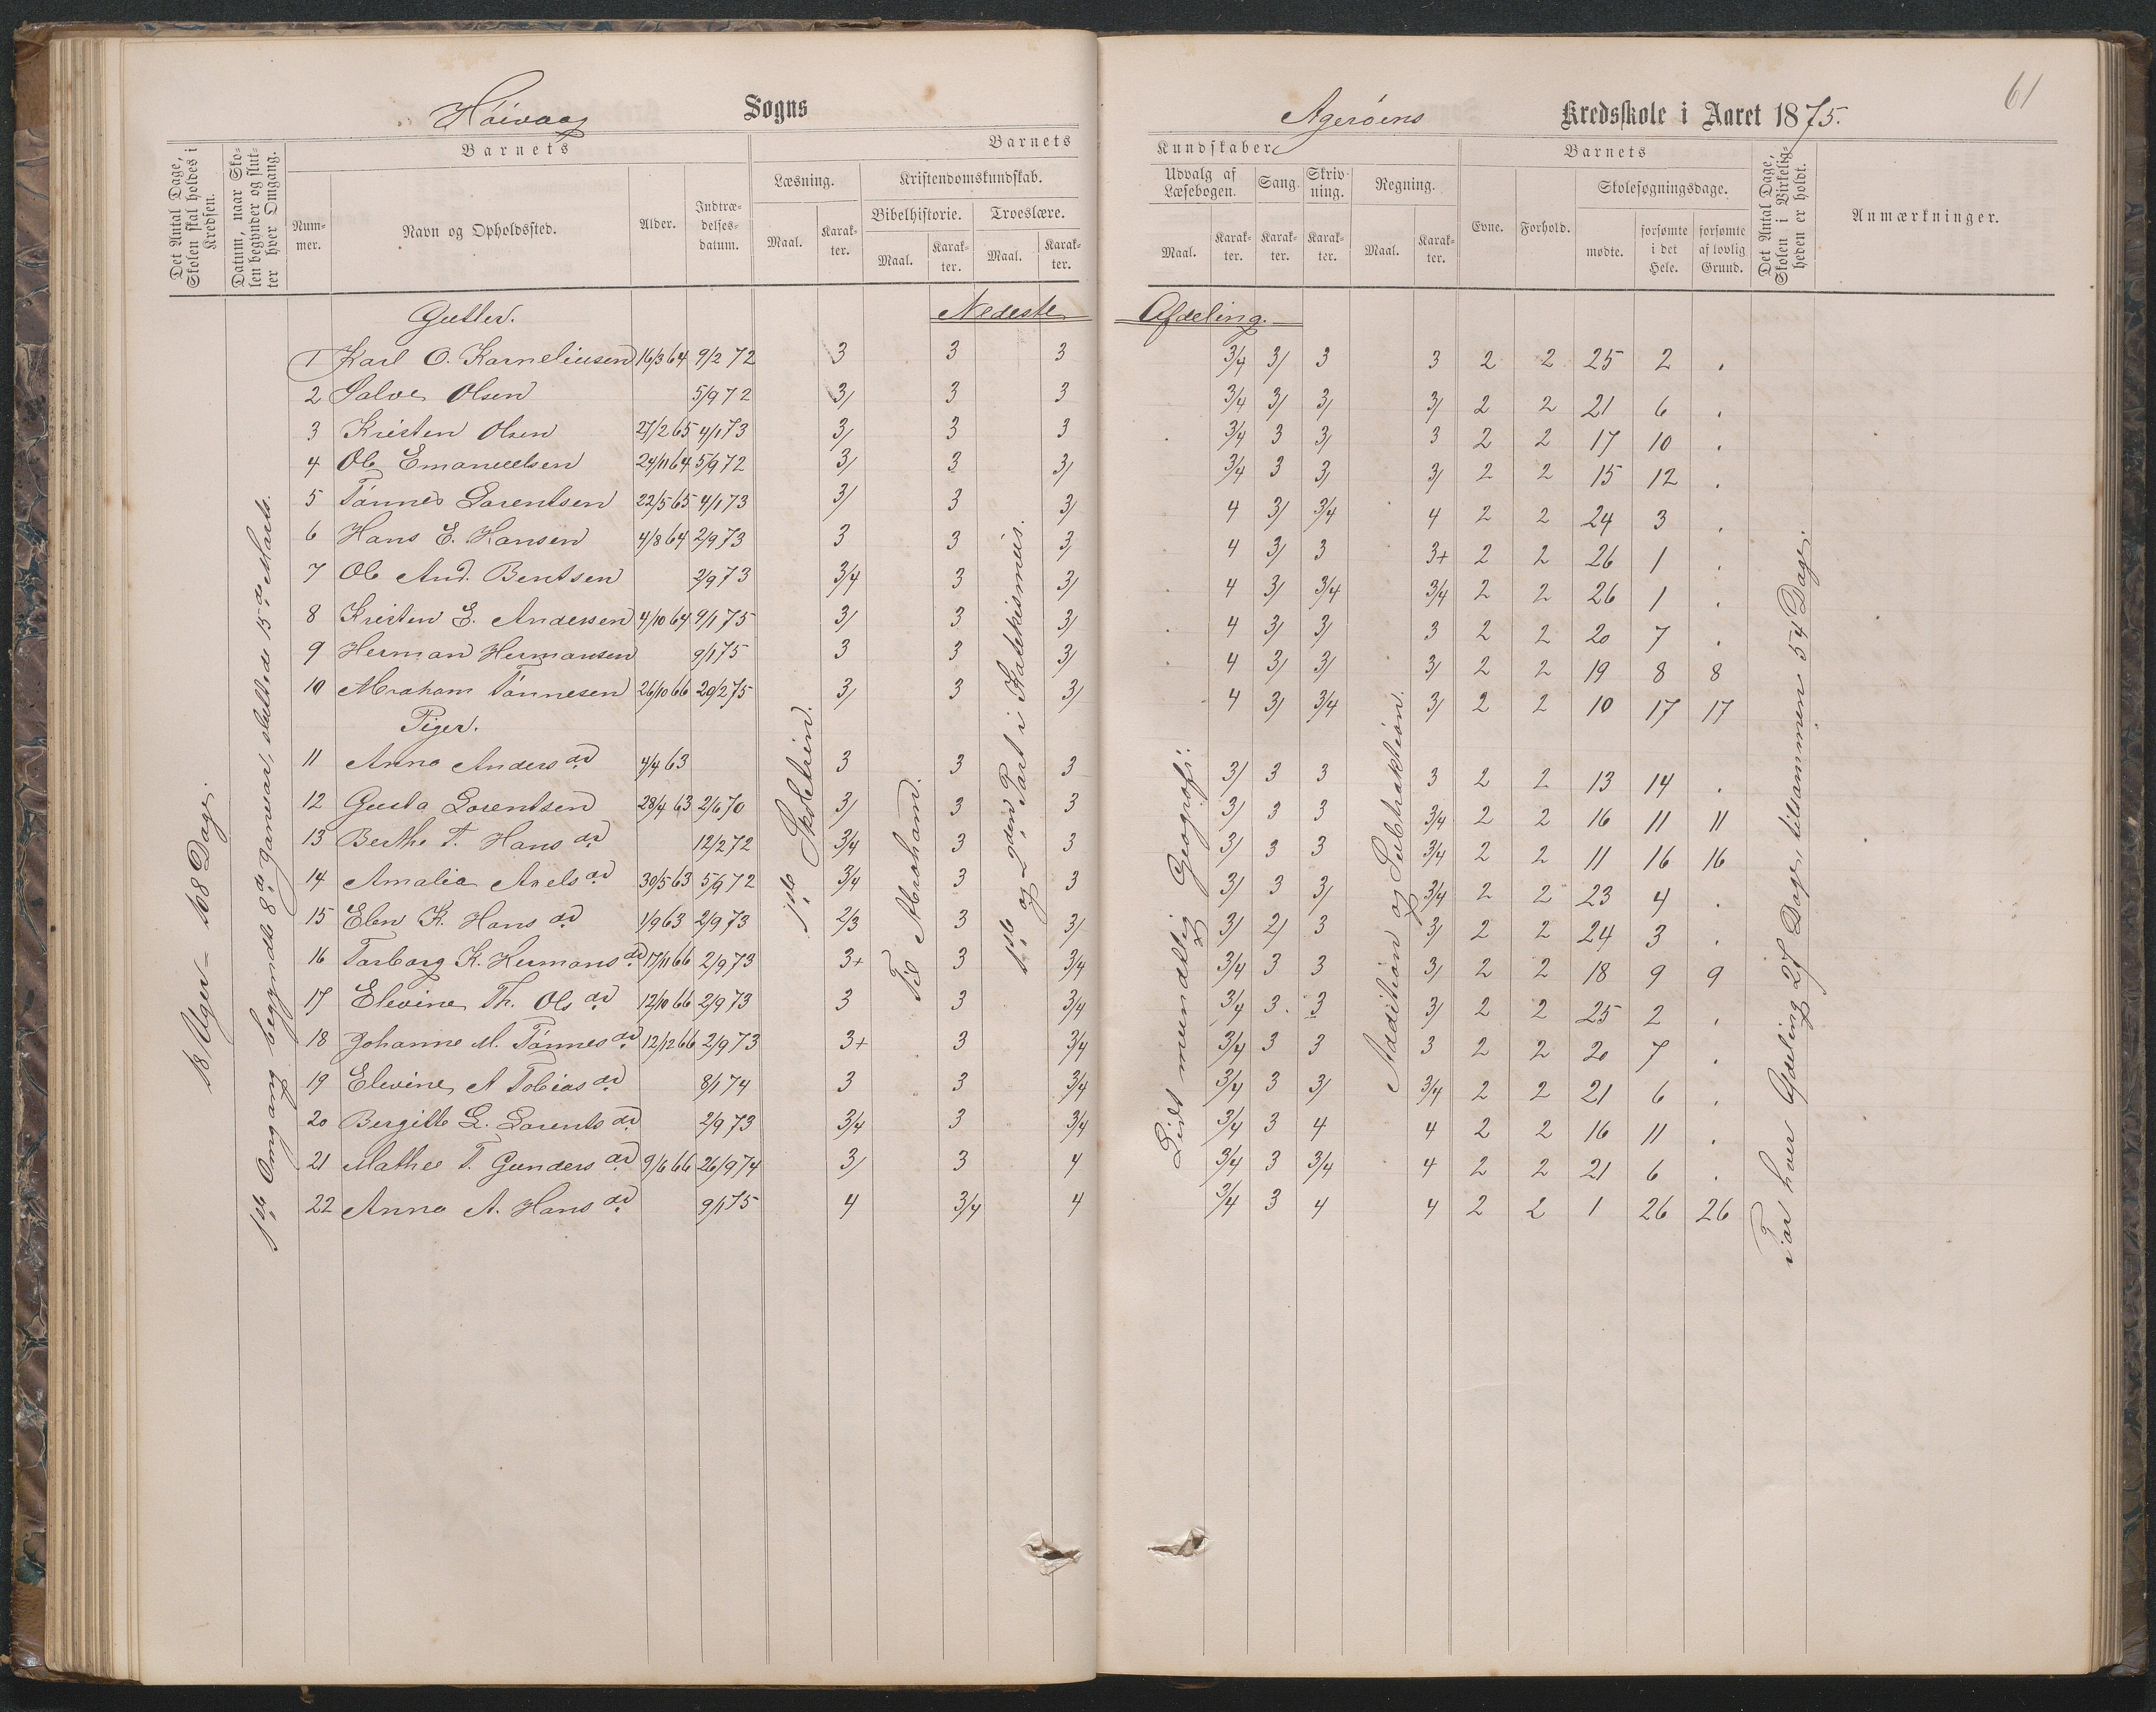 61
Høivaag Sogns
Agerøens Kredsskole i Aaret 1875.
Det Antal Dage, Skolen skal holdes i Kredsen.
Datum, naar Skolen begynder og slutter hver Omgang.
Barnets
Nummer.
Navn og Opholdssted.
Alder.
Indtrædelsesdatum.
Barnets
Læsning.
Maal.
Karakter.
Kristendomskundskab.
Bibelhistorie.
Maal.
Karakter.
Troeslære.
Maal.
Karakter.
Kundskaber
Udvalg af Læsebogen.
Maal.
Karakter.
Sang.
Karakter.
Skrivning.
Karakter.
Regning.
Maal.
Karakter.
Barnets
Evne.
Forhold.
Skolesøgningsdage.
mødte.
forsømte i det Hele.
forsømte af lovlig Grund.
Det Antal Dage, Skolen i Virkeligheden er holdt.
Anmærkninger.
Gutter. Nedeste Afdeling.
1 Karl O. Korneliusen 16/3 64 9/2 72 3 3 3 3/4 3/ 3 3 2 2 25 2 .
2 Salve Olsen 5/9 72 3/ 3 3 3/4 3/ 3/ 3/ 2 2 21 6 .
3 Kristen Olsen 27/2 65 4/1 73 3/ 3 3 3/4 3 3/ 3 2 2 17 10 .
4 Ole Emanuelsen 24/11 64 5/9 72 3/ 3 3/ 3/4 3 3/ 3/ 2 2 15 12 .
5 Tønnes Lorentsen 22/5 65 4/1 73 3/ 3 3/ 4 3/ 3/4 4 2 2 24 3 .
6 Hans E. Hansen 4/8 64 2/9 73 3 3 3/ 4 3/ 3 3+ 2 2 26 1 .
7 Ole And. Bentsen 2/9 73 3/4 3 3/ 4 3/ 3/4 3/4 2 2 26 1 .
8 Kristen E. Andersen 4/10 64 9/1 75 3/ 3 3/ 4 3/ 3/ 3 2 2 20 7 .
9 Herman Hermansen 9/1 75 3 3 3/ 4 3/ 3/ 3/ 2 2 19 8 8
10 Abraham Tønnesen 26/10 66 20/2 75 3/ 3 3/ 4 3/ 3/4 3/ 2 2 10 17 17
Piger.
11 Anna Andersdr. 4/4 63 3 3 3 3/ 3 3 3 2 2 13 14 .
12 Gusta Lorentsen 28/4 63 2/6 70 3/ 3 3 3/ 3 3 3/4 2 2 16 11 11
13 Berthe T. Hansdr. 12/2 72 3/4 3 3 3/ 3 3 3/4 2 2 11 16 16
14 Amalia Axelsdr. 30/5 63 5/9 72 3/4 3 3 3/ 3 3/ 3/4 2 2 23 4 .
15 Elen K. Hansdr. 1/9 63 2/9 73 2/3 3 3/ 3/ 2/ 3 3/ 2 2 24 3 .
16 Torborg K. Hermansdr. 17/11 66 2/9 73 3+ 3 3/4 3/4 3 3 3/ 2 2 18 9 9
17 Elevine Th. Olsdr. 12/10 66 2/9 73 3 3 3/4 3/4 3. 3 3/ 2 2 25 2 .
18 Johanne M. Tønnesdr. 12/12 66 2/9 73 3+ 3 3/4 3/4 3 3 3 2 2 20 7 .
19 Elevine A Tobiasdr. 8/1 74 3 3 3/4 3/4 3 3/ 3/4 2 2 21 6 .
20 Bergitte L. Lorentsdr. 2/9 73 3/4 3 3/4 3/4 3 4 4 2 2 16 11 .
21 Mathea T. Gundersdr. 9/6 66 26/9 74 3/ 3 4 3/4 3 3/4 4 2 2 21 6 .
22 Anna A. Hansdr. 9/1 75 4 3/4 4 3/4 3 4 4 2 2 1 26 26
18 Uger = 108 Dage.
1ste Omgang begyndte 8de Januar, sluttede 15de Marts.
1ste Skoletrin.
Til Abraham.
1ste og 2den Part i Katekismus.
Lidt mundtlig Geografi.
Addition og Subtraktion.
For hver Afdeling 27 Dage, tilsammen 54 Dage.